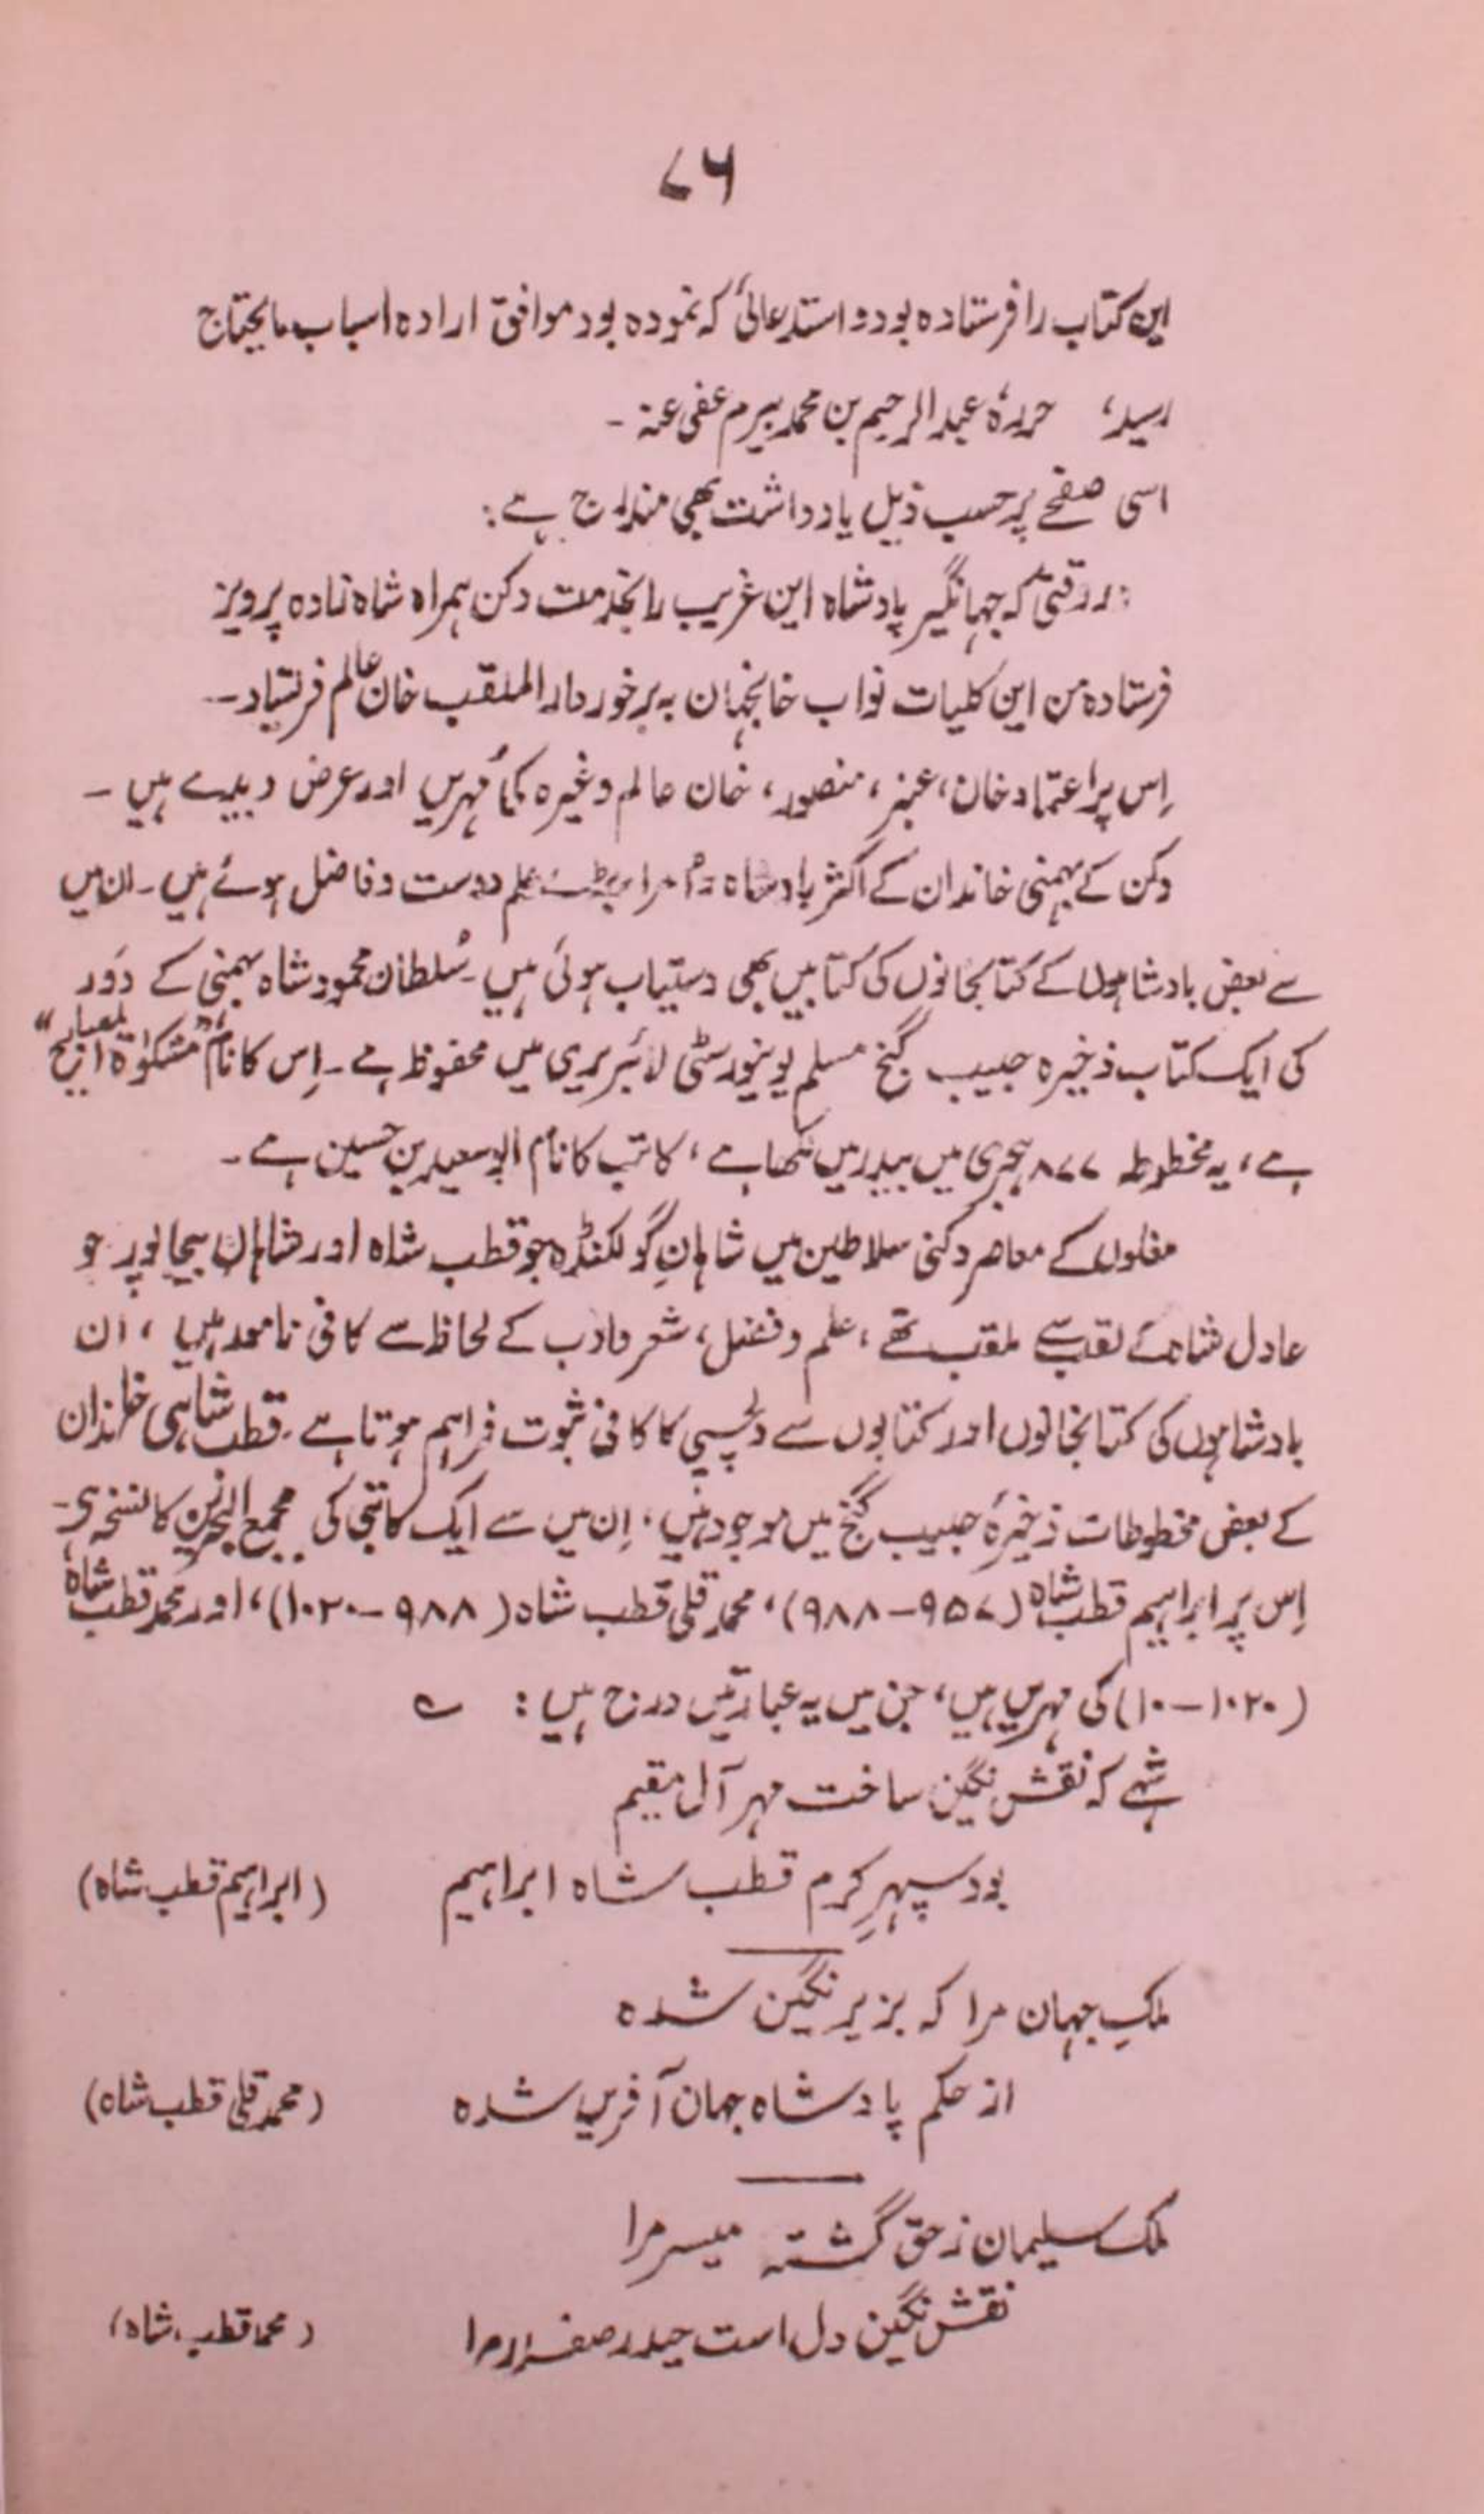 ۷۶
این کتاب را فرستاده بود و استدعائی کہ نمودہ بود موافق ارادہ اسباب مایحتاج
رسید، حررہٗ عبدالرحیم بن محمد بیرم عفی عنہ ۔
اسی صفحے پر حسب ذیل یادداشت بھی مندرج ہے :
: در وقتی کہ جہانگیر پادشاہ این غریب را بخدمت دکن ہمراہ شاہ زادہ پرویز
فرستادہ من این کلیات نواب خانجہان بہ برخوردار الملقب خان عالم فرستاد ۔
اِس پر اعتماد خان، عنبر، منصور، خان عالم وغیرہ کی مُہریں اور عرض دیدے ہیں ۔
دکن کے بہمنی خاندان کے اکثر بادشاہ علم دوست و فاضل ہوئے ہیں ۔ ان میں
سے بعض بادشاہوں کے کتابخانوں کی کتابیں بھی دستیاب ہوئی ہیں ۔ سُلطان محمود شاہ بہمنی کے دَور
کی ایک کتاب ذخیرہ حبیب گنج مسلم یونیورسٹی لائبریری میں محفوظ ہے ۔ اِس کا نام "مشکوٰۃ المصابیح"
ہے، یہ مخطوطہ ۸۷۷ ہجری میں بیدر میں لکھا ہے، کاتب کا نام ابو سعید بن حسین ہے ۔
مغلوں کے معاصر دکنی سلاطین میں شاہانِ گولکنڈہ جو قطب شاہ اور شاہان بیجاپور جو
عادل شاہ کے لقب سے ملقب تھے، علم و فضل، شعر و ادب کے لحاظ سے کافی نامور ہیں، ان
بادشاہوں کی کتابخانوں اور کتابوں سے دلچسپی کا کافی ثبوت فراہم ہوتا ہے ۔ قطب شاہی خاندان
کے بعض مخطوطات ذخیرۂ حبیب گنج میں موجود ہیں، اِن میں سے ایک کاتبی کی مجمع البحرین کا نسخہ ہے ۔
اِس پر ابراہیم قطب شاہ (۹۵۷ – ۹۸۸)، محمد قلی قطب شاہ (۹۸۸ – ۱۰۲۰)، اور محمد قطب شاہ
(۱۰۲۰ – ۱۰) کی مہریں ہیں، جن میں یہ عبارتیں درج ہیں :
شہے کہ نقش نگین ساخت مہر آل مقیم
بود سپہرِ کرم قطب شاہ ابراہیم (ابراہیم قطب شاہ)
ملکِ جہان مرا کہ بزیر نگین شدہ
از حکم پادشاہ جہان آفریں شدہ (محمد قلی قطب شاہ)
ملک سلیمان ز حق گشتہ میسر مرا
نقش نگین دل است حیدر صفدر مرا (محمد قطب شاہ)